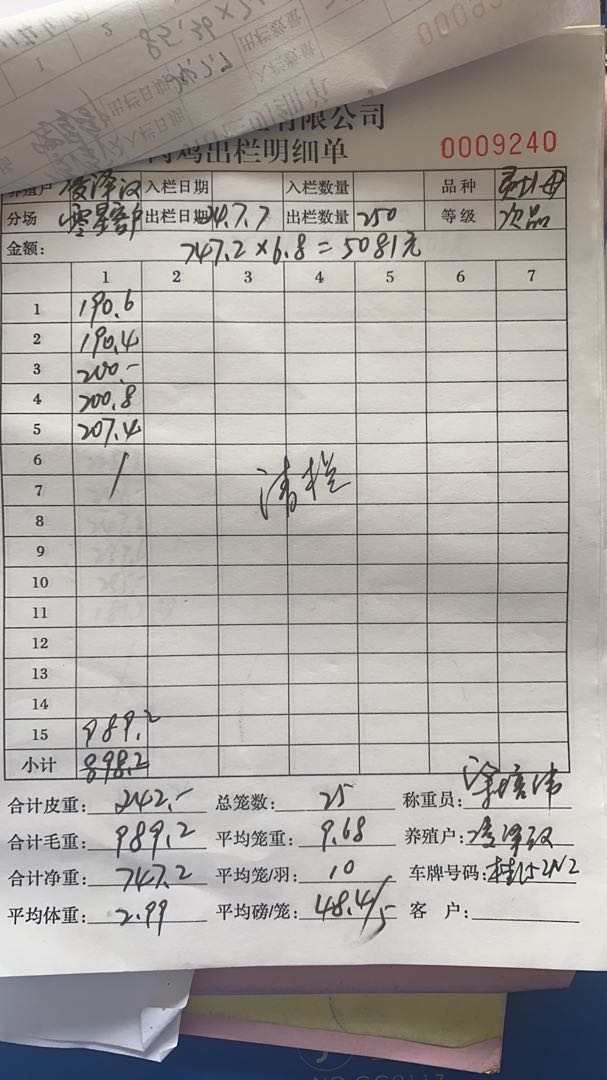 有限公司
肉鸡出栏明细单 0009240
养殖户 凌泽汉 入栏日期 入栏数量 品种
分场 零星客户 出栏日期 24.7.7 出栏数量 250 等级 次品
金额: 747.2×6.8=5081元
1 2 3 4 5 6 7
1 190.6
2 190.4
3 200.-
4 200.8
5 207.4
6
7 清栏
8
9
10
11
12
13
14
15 989.2
小计 898.2
合计皮重: 242.- 总笼数: 25 称重员:
合计毛重: 989.2 平均笼重: 9.68 养殖户: 凌泽汉
合计净重: 747.2 平均笼/羽: 10 车牌号码:
平均体重: 2.99 平均磅/笼: 48.4/5 客 户: